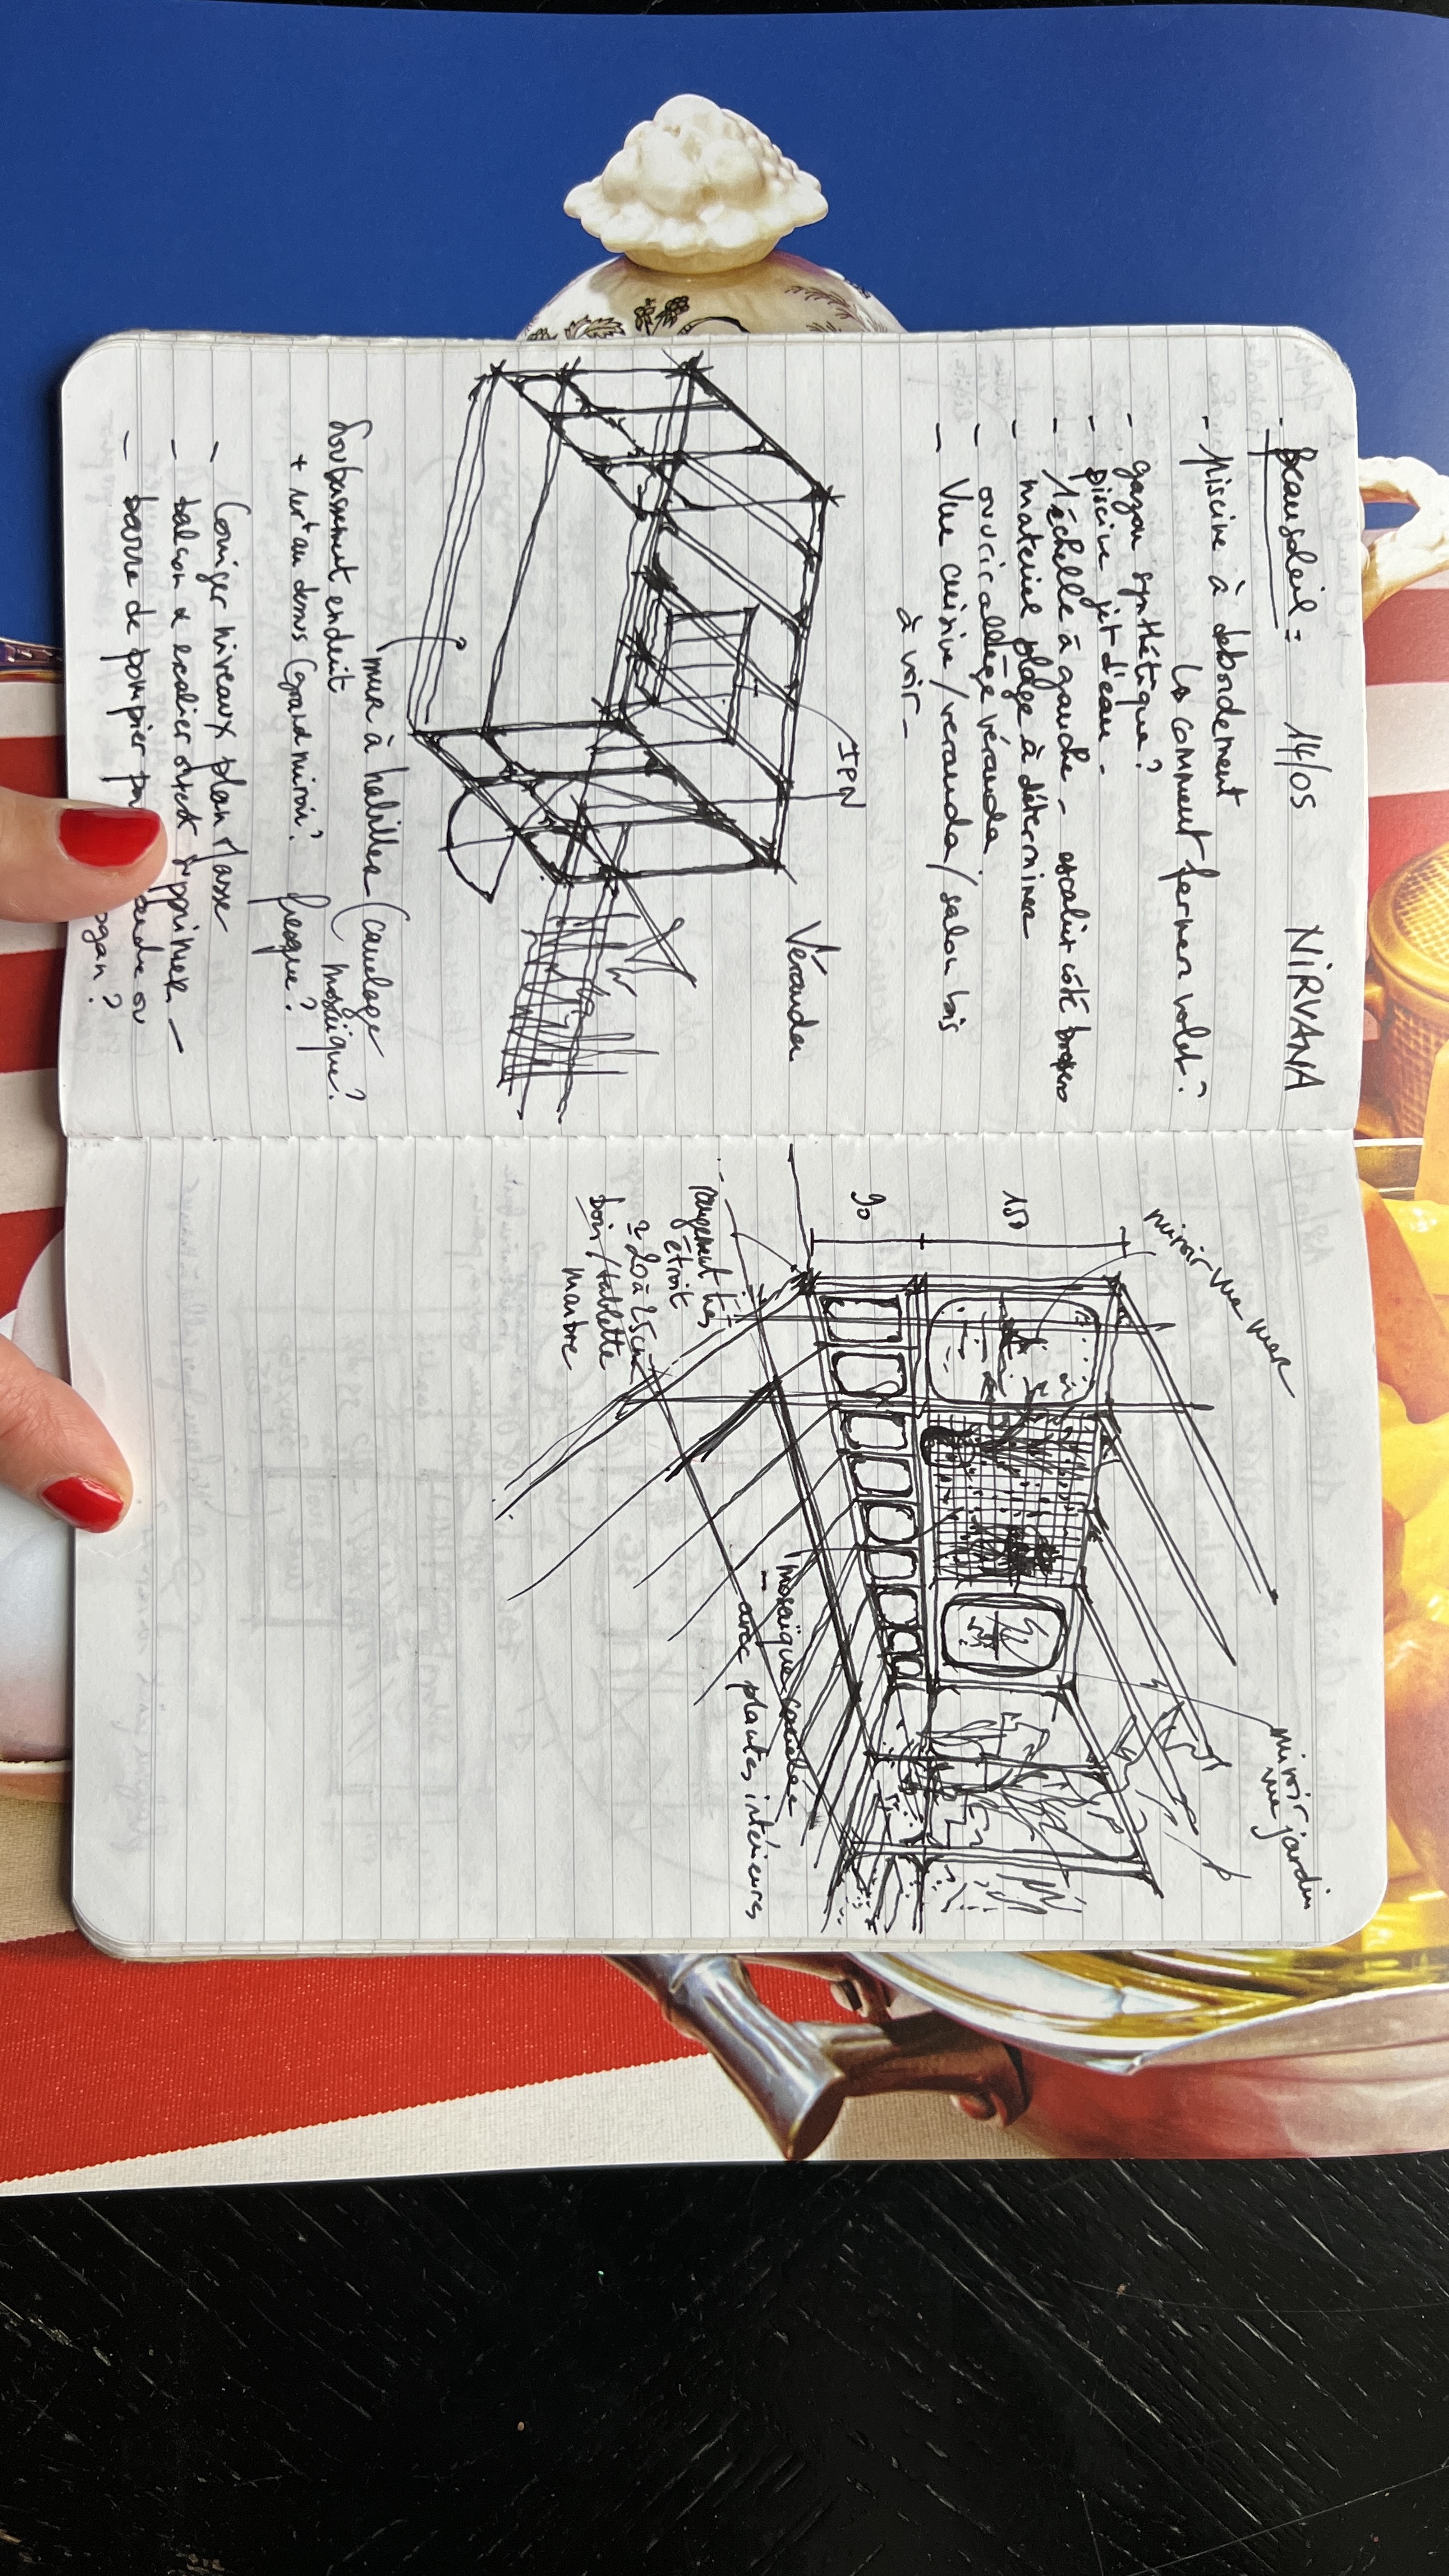 - Beausoleil : 14/05 NIRVANA
- piscine à debordement
↳ comment fermer volet ?
- gazon synthétique ?
- piscine jet d'eau -
- 1 échelle à gauche - escalier côté
- materiel plage à déterminer
- ouvrir allège véranda
- Vue cuisine / veranda / salon bois
à voir -
IPN
Véranda
mur à habiller (canelage
mosaïque ?
soubassement enduit
+ au dessus (grand miroir ? fresque ?
- Corriger niveaux plan Masse
- balcon & escalier ouest supprimer -
- barre de pompier ou
miroir vue mer
150
90
rangement très
étroit
= 20 à 25 cm
bois / tablette
marbre
mosaïque
- avec plantes intérieures
miroir
vue jardin